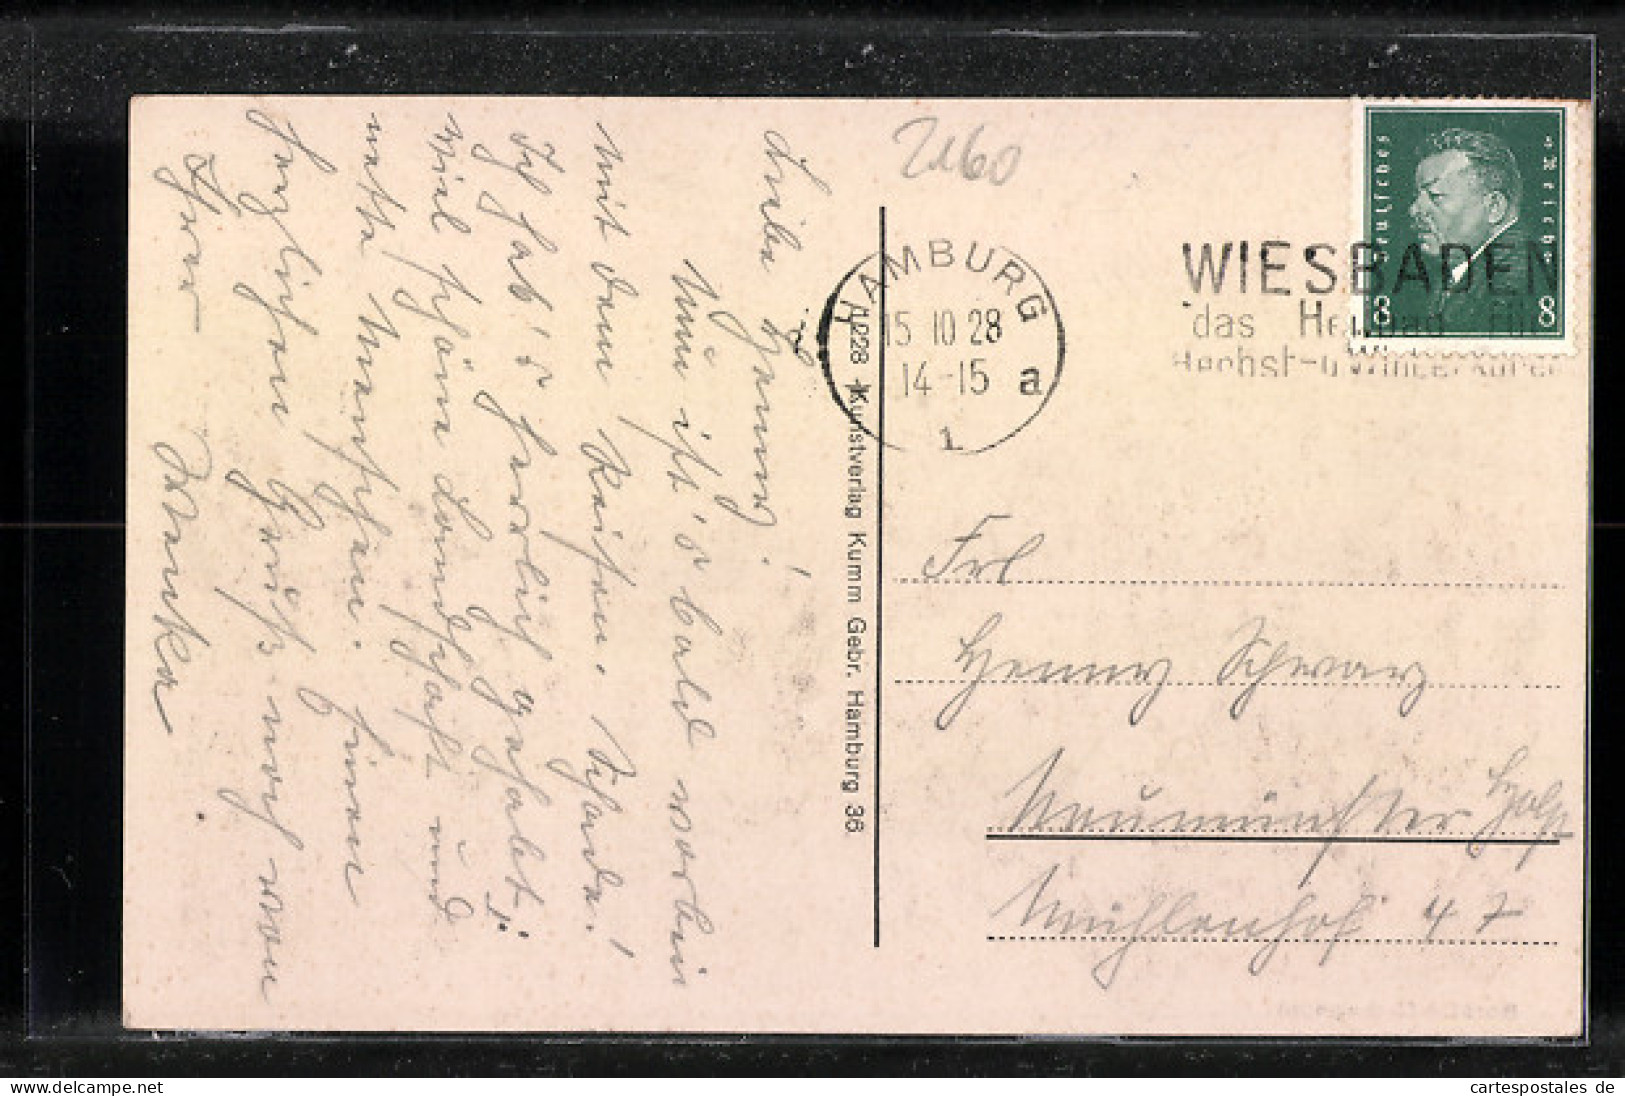 2160
Liebe Henny!
Nun ist's bald vorbei
mit dem Reisen. Schade!
Ich hab's herrlich gehabt;
viel schöne Landschaft und
nette Menschen. Einen
herzlichen Gruß noch von
Ihrer
1028 Kunstverlag Kumm Gebr. Hamburg 36
HAMBURG
15 10 28
14-15 a
1
WIESBADEN
das Heilbad für
Herbst-u Winterkuren
Deutsches Reich
8 8
Frl
Henny Schwarz
Neumünster Holst
Mühlenhof 47
cartespostales de